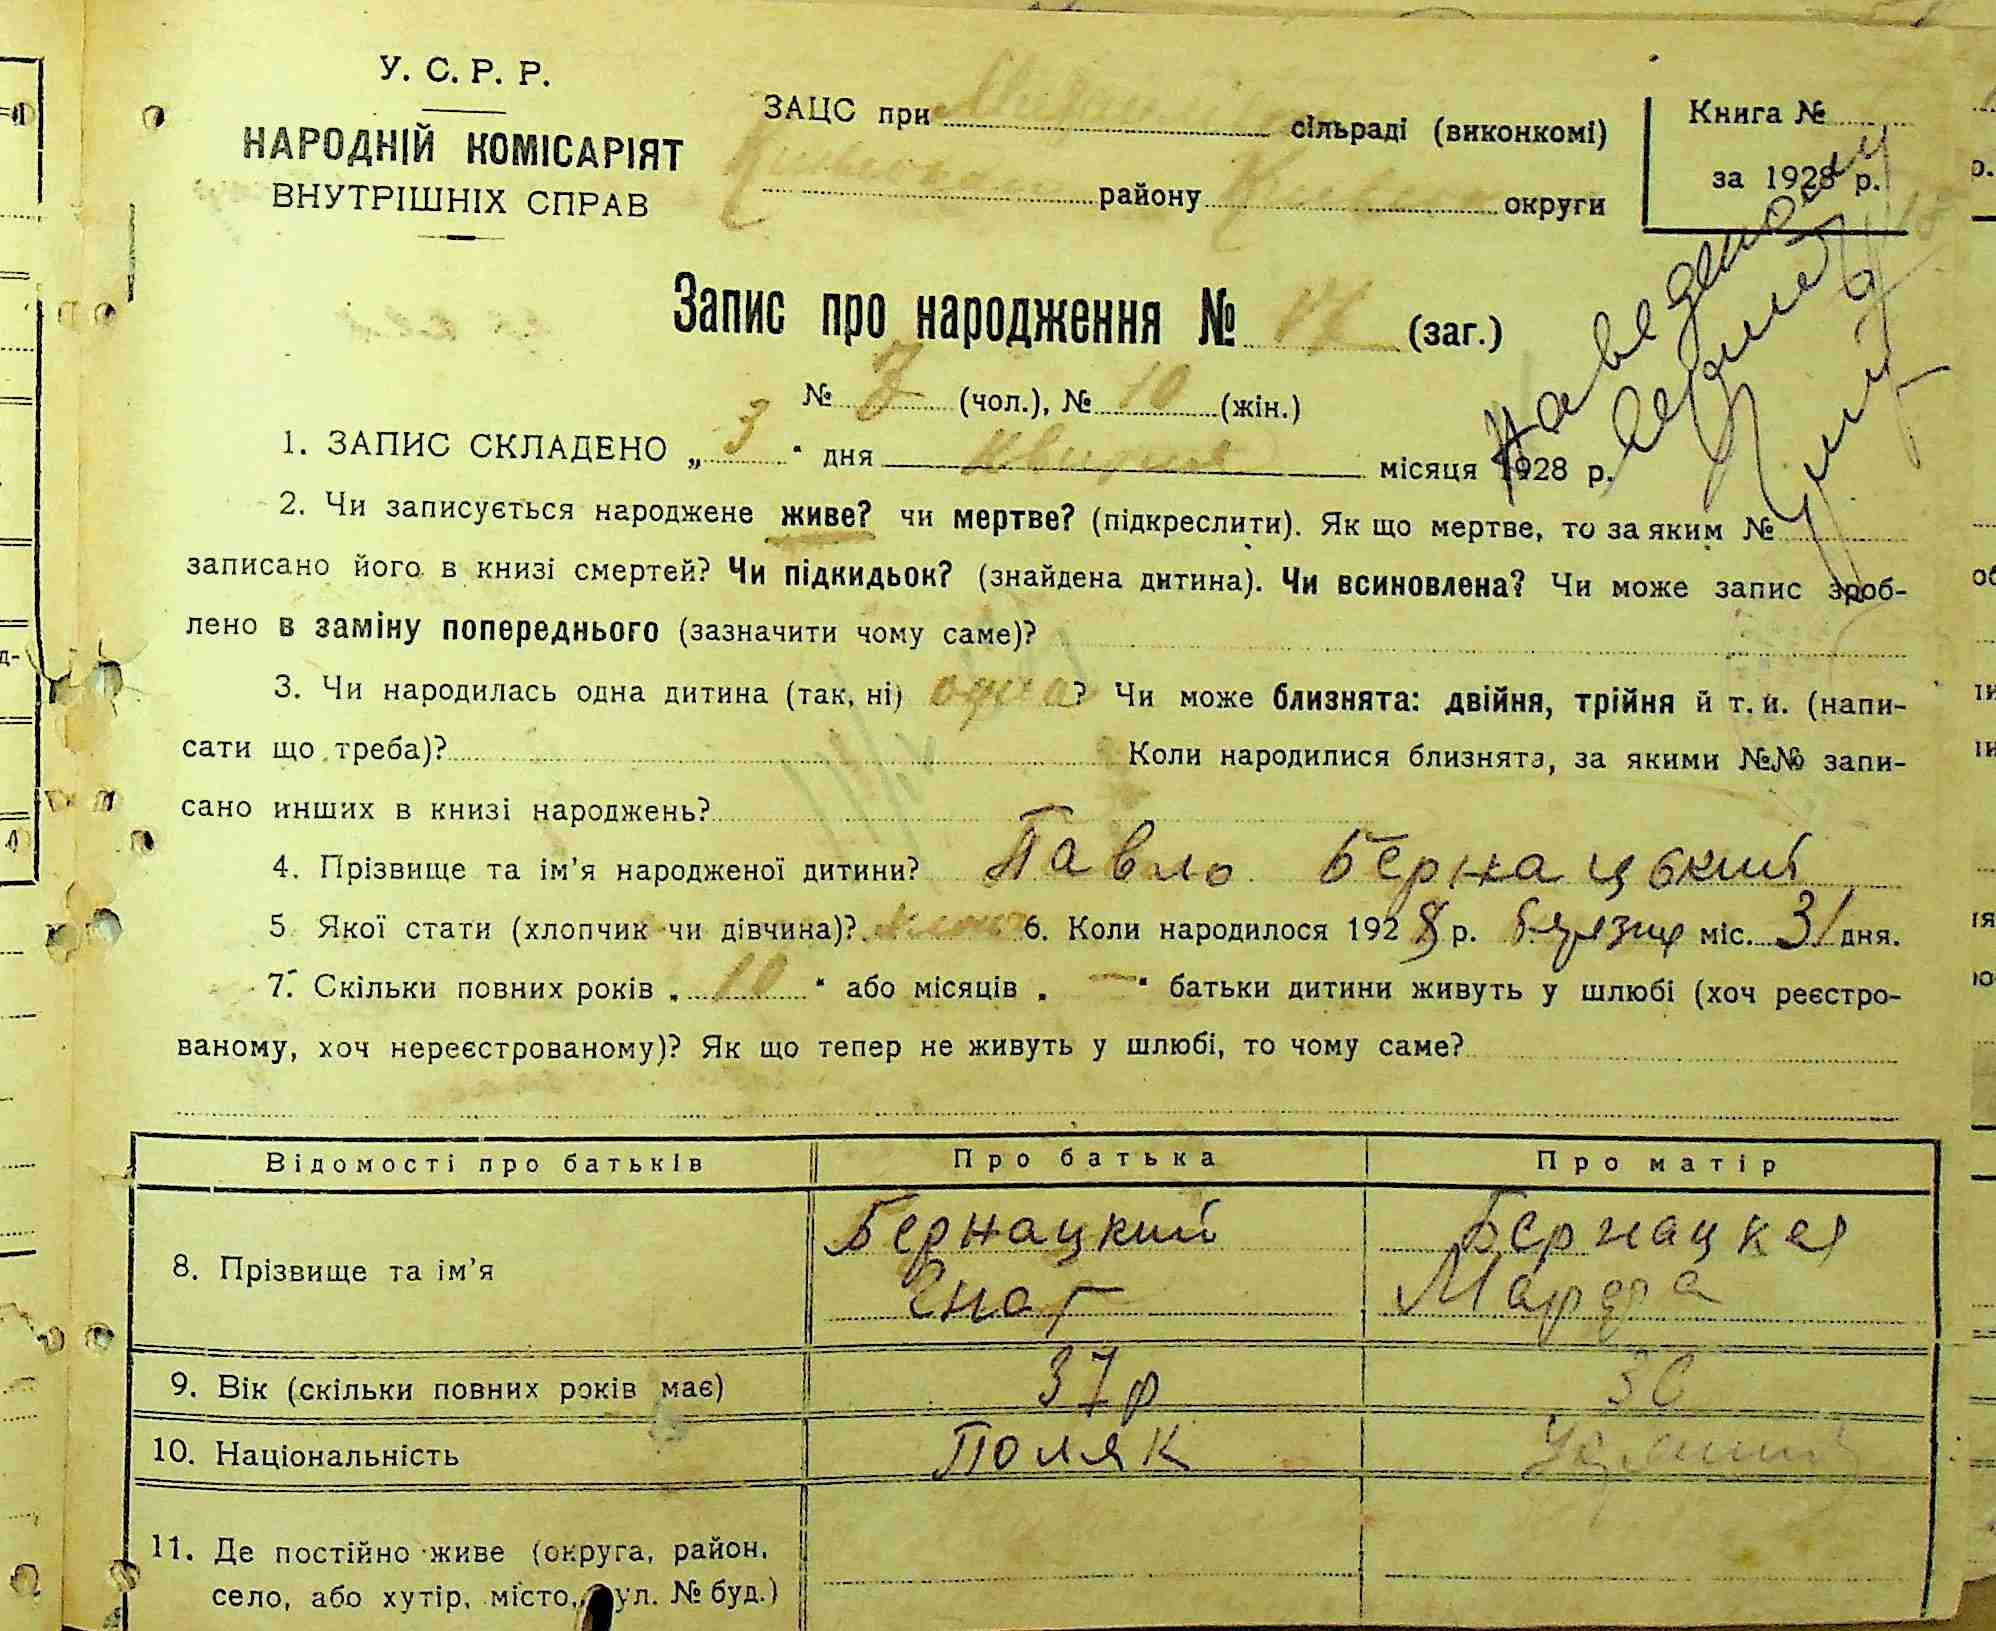 У. С. Р. Р.
НАРОДНІЙ КОМІСАРІЯТ
ВНУТРІШНІХ СПРАВ
ЗАЦС при сільраді (виконкомі)
району округи
Книга №
за 1928 р.
Запис про народження № (заг.)
№ 7 (чол.), № 10 (жін.)
1. ЗАПИС СКЛАДЕНО „3“ дня квітня місяця 1928 р.
2. Чи записується народжене живе? чи мертве? (підкреслити). Як що мертве, то за яким №
записано його в книзі смертей? Чи підкидьок? (знайдена дитина). Чи всиновлена? Чи може запис зроб-
лено в заміну попереднього (зазначити чому саме)?
3. Чи народилась одна дитина (так, ні) одна? Чи може близнята: двійня, трійня й т. и. (напи-
сати що треба)? Коли народилися близнята, за якими №№ запи-
сано инших в книзі народжень?
4. Прізвище та ім’я народженої дитини? Павло Бернацький
5 Якої стати (хлопчик чи дівчина)? 6. Коли народилося 1928 р. березня міс. 31 дня.
7. Скільки повних років „10“ або місяців „—“ батьки дитини живуть у шлюбі (хоч реєстро-
ваному, хоч нереєстрованому)? Як що тепер не живуть у шлюбі, то чому саме?
Відомості про батьків Про батька Про матір
8. Прізвище та ім’я Бернацкий Гнат Бернацкая Марфа
9. Вік (скільки повних років має) 37 р 30
10. Національність Поляк
11. Де постійно живе (округа, район,
село, або хутір, місто, вул. № буд.)